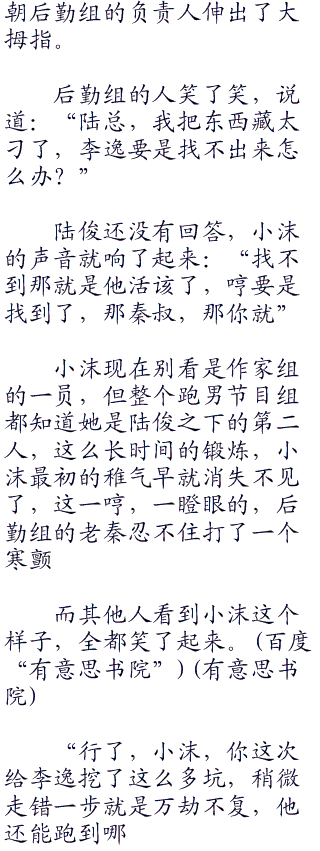 朝后勤组的负责人伸出了大
拇指。
后勤组的人笑了笑，说
道：“陆总，我把东西藏太
刁了，李逸要是找不出来怎
么办？”
陆俊还没有回答，小沫
的声音就响了起来：“找不
到那就是他活该了，哼要是
找到了，那秦叔，那你就”
小沫现在别看是作家组
的一员，但整个跑男节目组
都知道她是陆俊之下的第二
人，这么长时间的锻炼，小
沫最初的稚气早就消失不见
了，这一哼，一瞪眼的，后
勤组的老秦忍不住打了一个
寒颤
而其他人看到小沫这个
样子，全都笑了起来。(百度
“有意思书院”)(有意思书
院)
“行了，小沫，你这次
给李逸挖了这么多坑，稍微
走错一步就是万劫不复，他
还能跑到哪